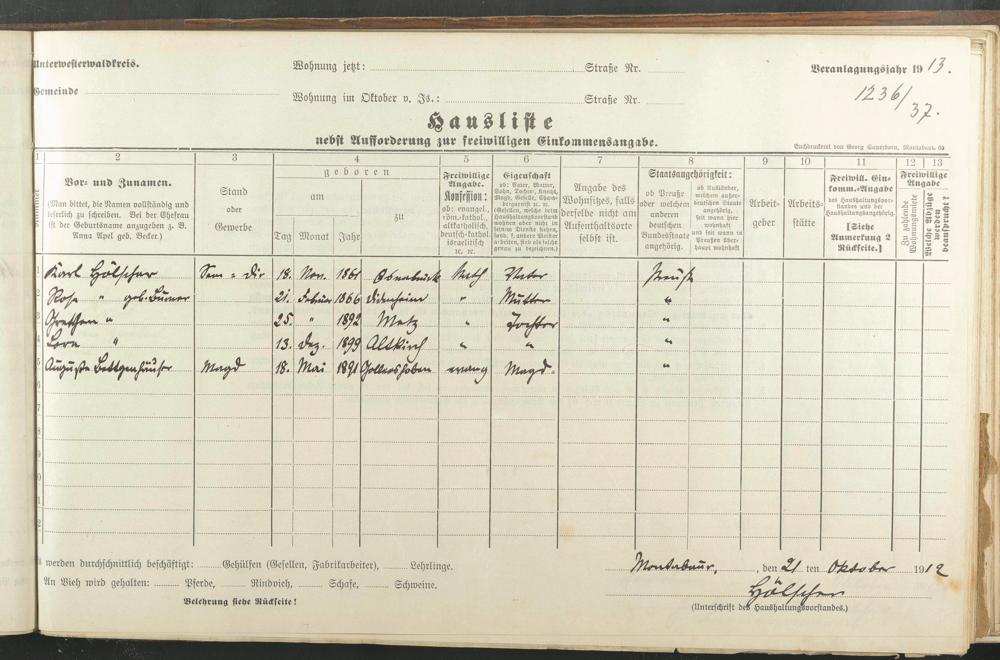 Unterwesterwaldkreis. Wohnung jetzt: Straße Nr. Veranlagungsjahr 1913.
Gemeinde Wohnung im Oktober v. Js.: Straße Nr. 1236/37.
Hausliste
nebst Aufforderung zur freiwilligen Einkommensangabe.
Buchdruckerei von Georg Sauerborn, Montabaur.
1 2 3 4 5 6 7 8 9 10 11 12 13
Vor- und Zunamen.
(Man bittet, die Namen vollständig und
leserlich zu schreiben. Bei der Ehefrau
ist der Geburtsname anzugeben z. B.
Anna Apel geb. Becker.)
Stand
oder
Gewerbe
geboren
am zu
Tag Monat Jahr
Freiwillige
Angabe.
Konfession:
ob: evangel.,
röm.-kathol.,
altkatholisch,
deutsch-kathol.
israelitisch
ꝛc. ꝛc.
Eigenschaft
ob: Vater, Mutter,
Sohn, Tochter, Knecht,
Magd, Geselle,
Angabe des
Wohnsitzes, falls
derselbe nicht am
Aufenthaltsorte
selbst ist.
Staatsangehörigkeit:
ob Preuße
oder welchem
anderen
deutschen
Bundesstaate
angehörig.
ob Ausländer,
welchem außer-
deutschen Staate
angehörig,
seit wann hier
wohnhaft
und seit wann in
Preußen über-
haupt wohnhaft
Arbeit-
geber
Arbeits-
stätte
Freiwill. Ein-
komm.-Angabe
des Haushaltungsvor-
standes und der
Haushaltungsangehörig.
[Siehe
Anmerkung 2
Rückseite.]
Freiwillige
Angabe
Zu zahlende
Wohnungsmiete
Welche Abzüge
werden
beansprucht?
1 Karl Hölscher Sem = Dir 18. Nov. 1861 Osnabrück kath Vater Preuße
2 Rosa " geb. 21. Februar 1866 Didenheim " Mutter "
3 Gretchen " 25. " 1892 Metz " Tochter "
4 Lora " 13. Dez. 1899 Altkirch " " "
5 Auguste Magd 18. Mai 1891 evang Magd "
6
7
8
9
0
1
2
werden durchschnittlich beschäftigt: Gehülfen (Gesellen, Fabrikarbeiter), Lehrlinge. Montabaur, den 21 ten Oktober 1912
An Vieh wird gehalten: Pferde, Rindvieh, Schafe, Schweine. Hölscher
Belehrung siehe Rückseite! (Unterschrift des Haushaltungsvorstandes.)